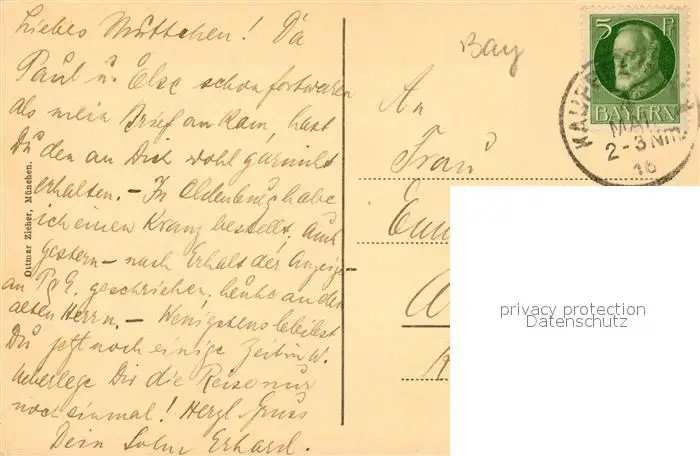 Liebes Muttchen! Da
Paul u. Else schon fortwaren
als mein Brief ankam, hast
Du den an Dich wohl garnicht
erhalten. – In Oldenburg habe
ich einen Kranz bestellt, auch
gestern – nach Erhalt der Anzeige –
an P. & E. geschrieben, heute an den
alten Herrn. – Wenigstens bleibst
Du jetzt noch einige Zeit in W.
Ueberlege Dir die Reise nur
noch einmal! Herzl. Gruss
Dein Sohn Erhard.
Ottmar Zieher, München.
Bay
An
Frau
5 P
BAYERN
MAI
2-3 Nm.
16
privacy protection
Datenschutz